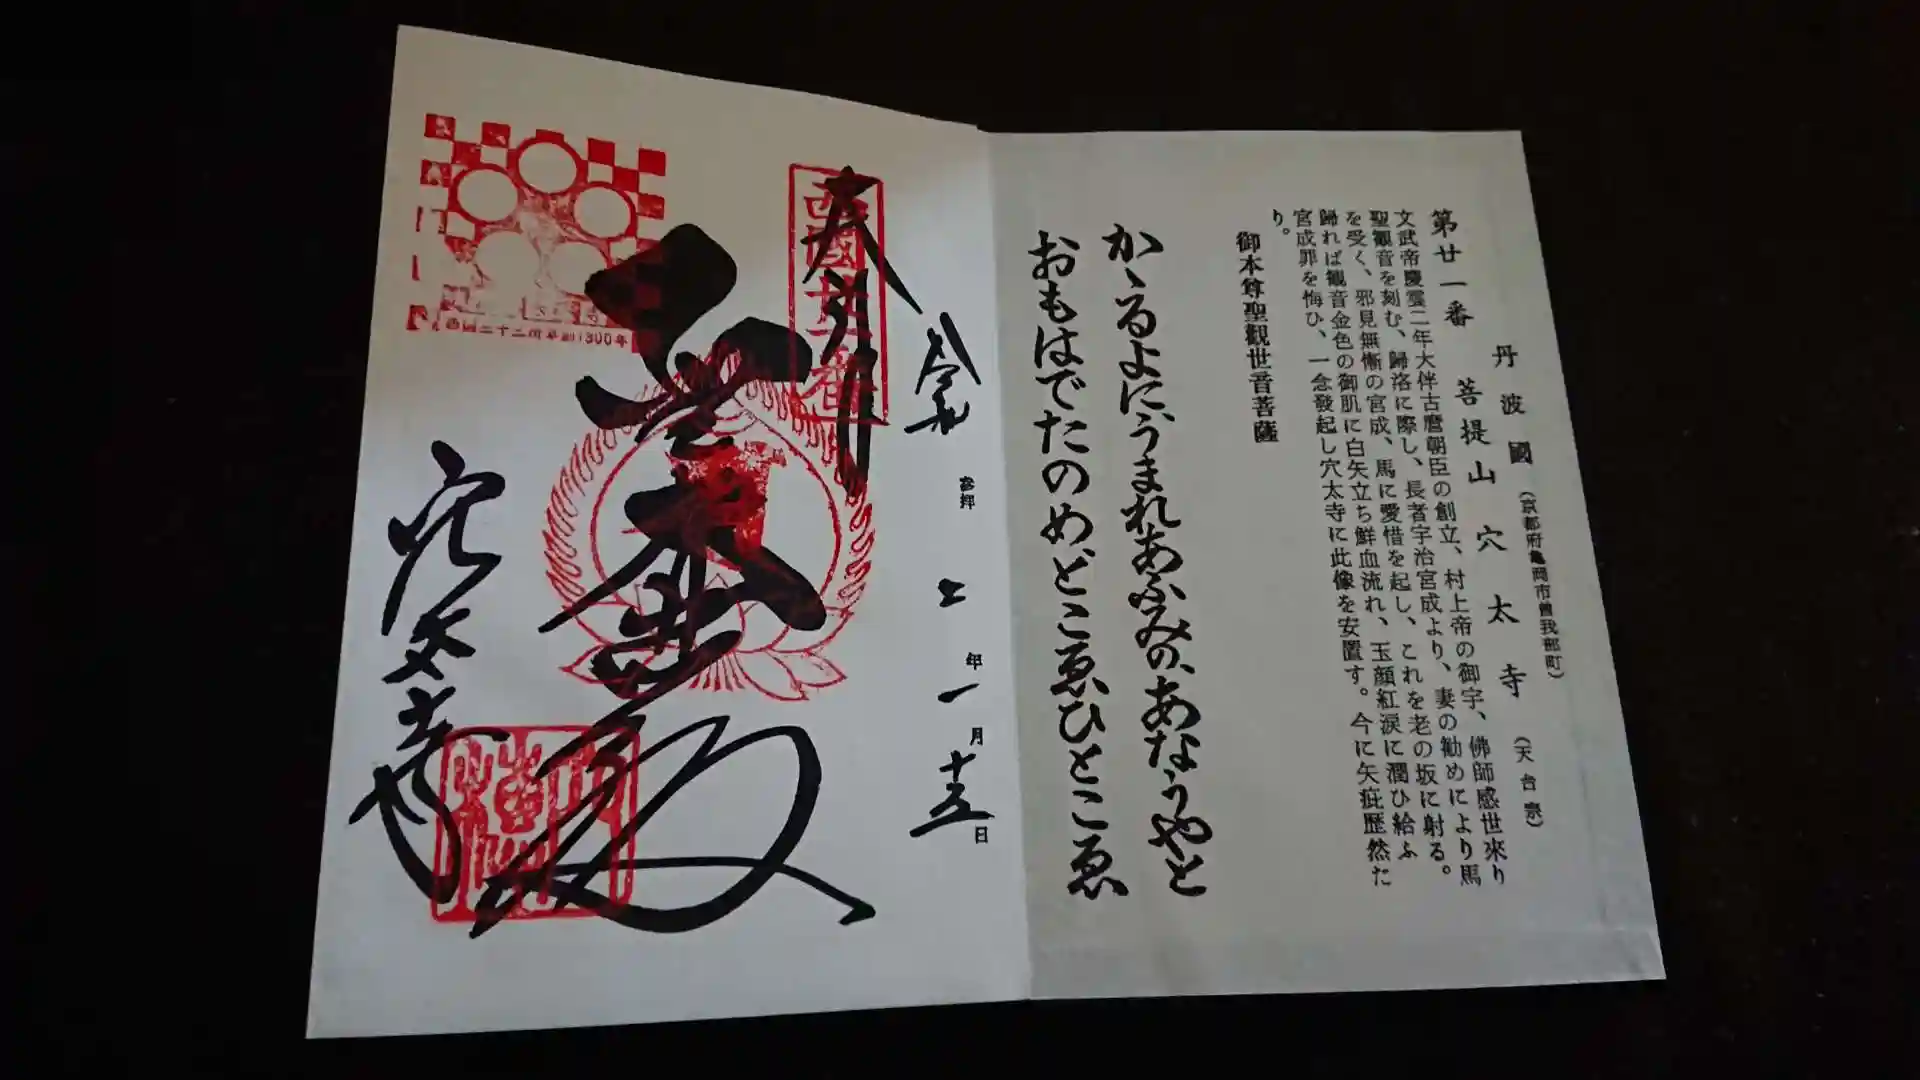 丹波國(京都府亀岡市曽我部町)
第廿一番 菩提山 穴太寺(天台宗)
文武帝慶雲二年大伴古麿朝臣の創立、村上帝の御宇、佛師感世來り
聖觀音を刻む、歸洛に際し、長者宇治宮成より、妻の勧めにより馬
を受く、邪見無慚の宮成、馬に愛惜を起し、これを老の坂に射る。
歸れば観音金色の御肌に白矢立ち鮮血流れ、玉顔紅涙に潤ひ給ふ
宮成罪を悔ひ、一念發起し穴太寺に此像を安置す。今に矢疵歴然た
り。
御本尊聖觀世音菩薩
かゝるよにうまれあふみのあなうやと
おもはでたのめどこゑひとこゑ
令和 年一月十五日
参拝
奉拝
西國廿一番
穴太寺
西国三十三所草創1300年